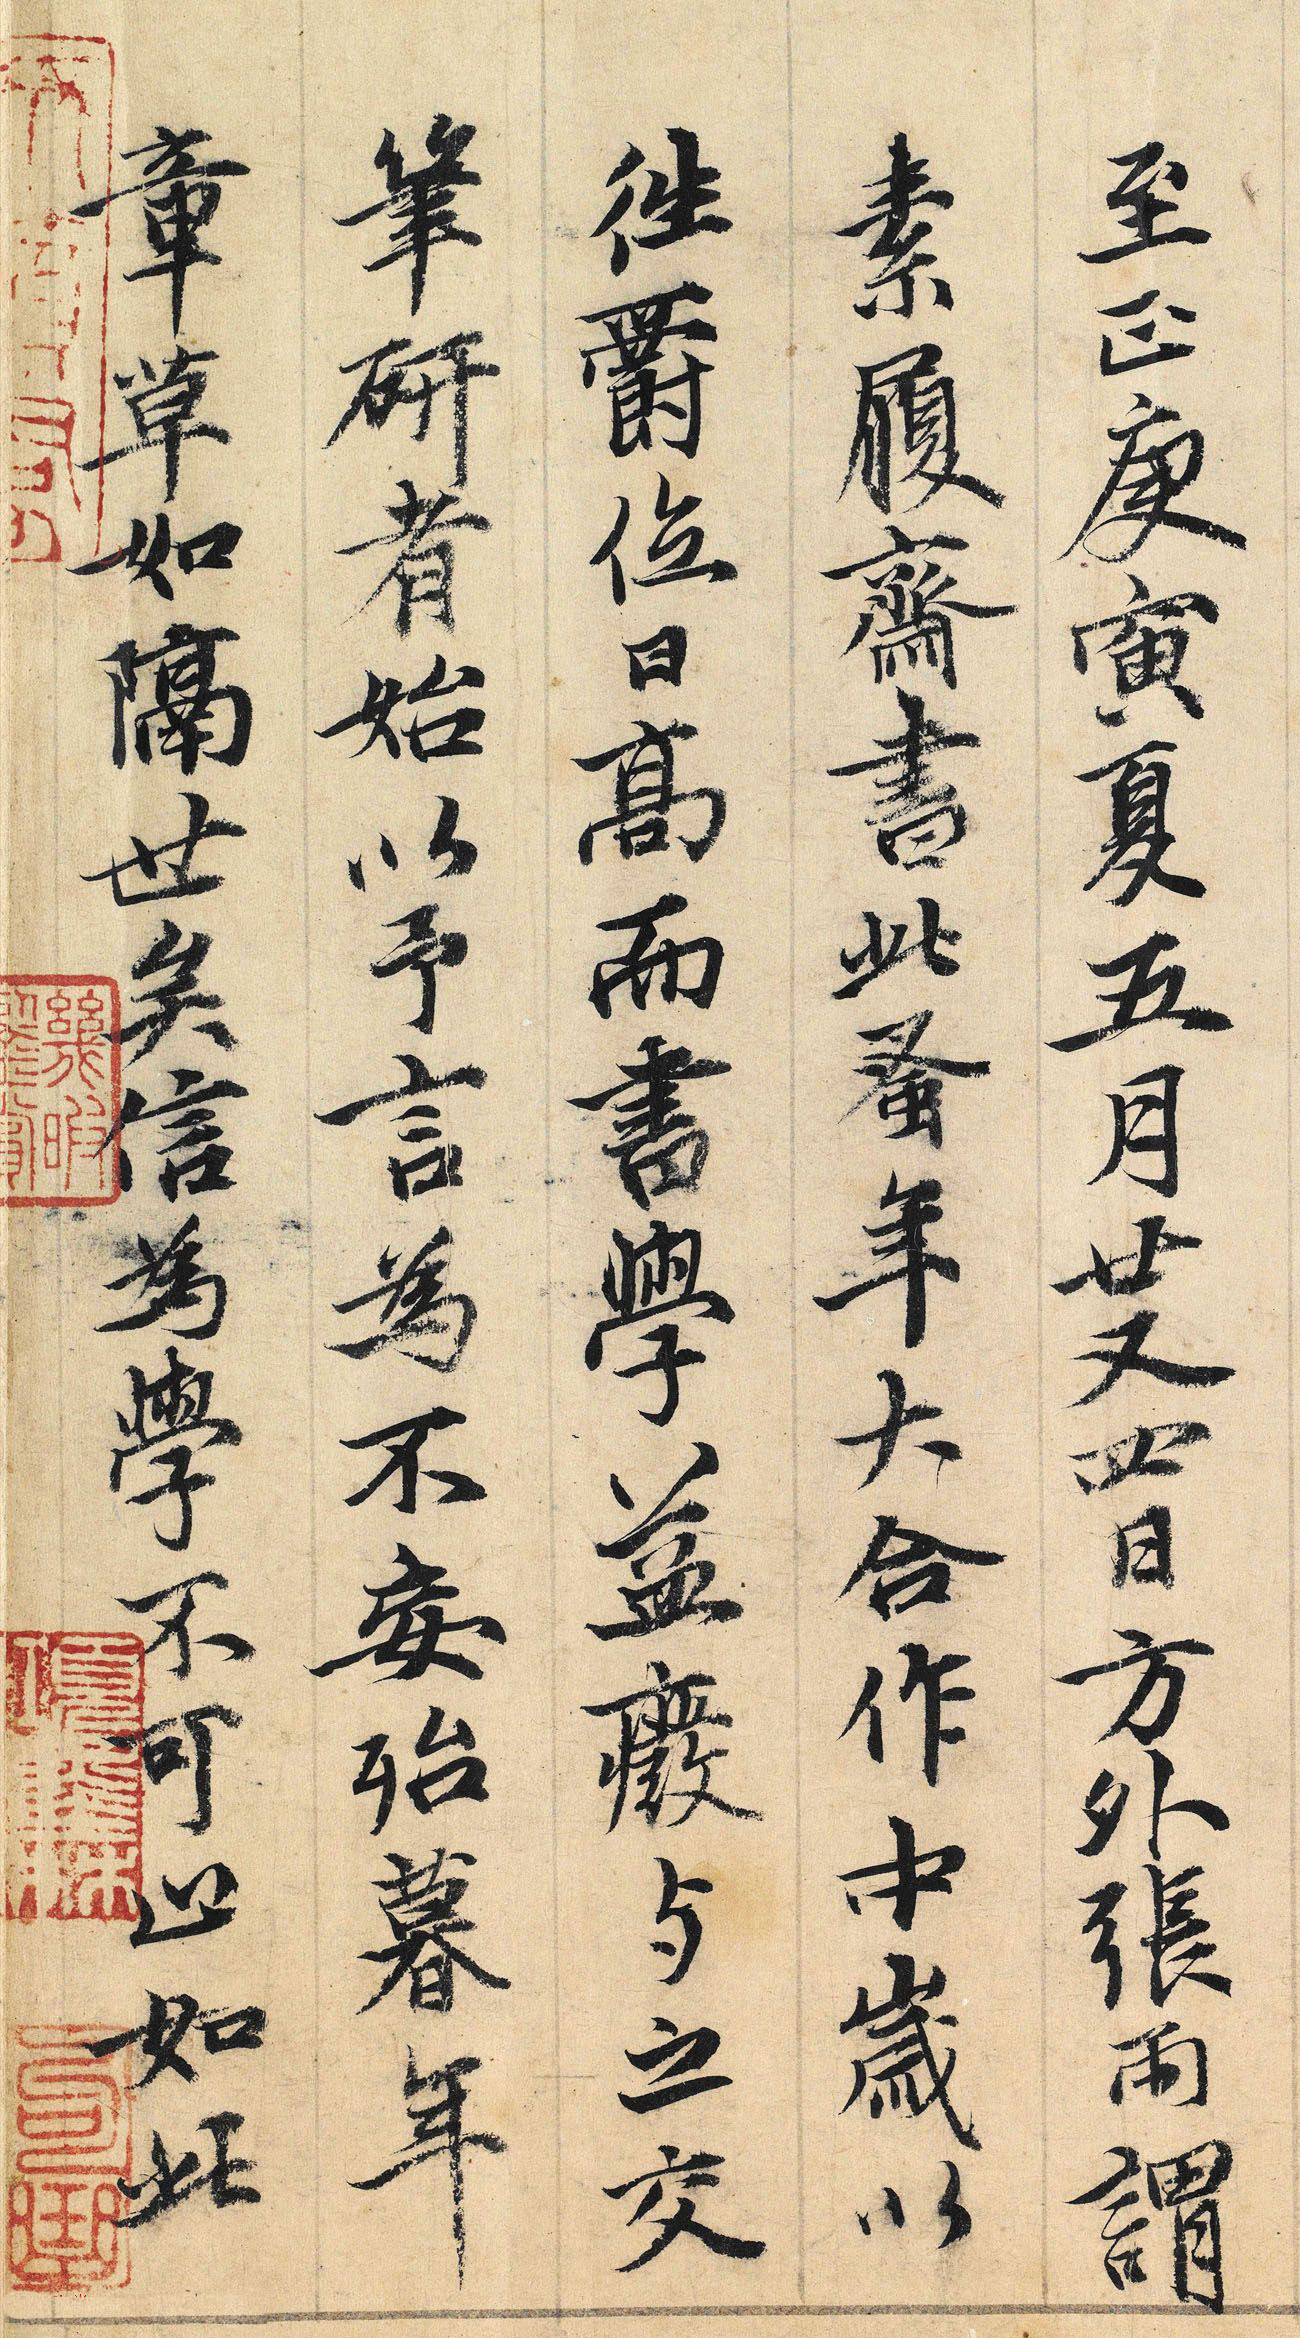 至正庚寅夏五月廿又四日方外張雨謂
素履齋書此蚤年大合作中歲以
徃爵位日高而書學益癈与之交
筆研者始以予言為不妄殆暮年
章草如隔世矣信為學不可止如此
幾暇